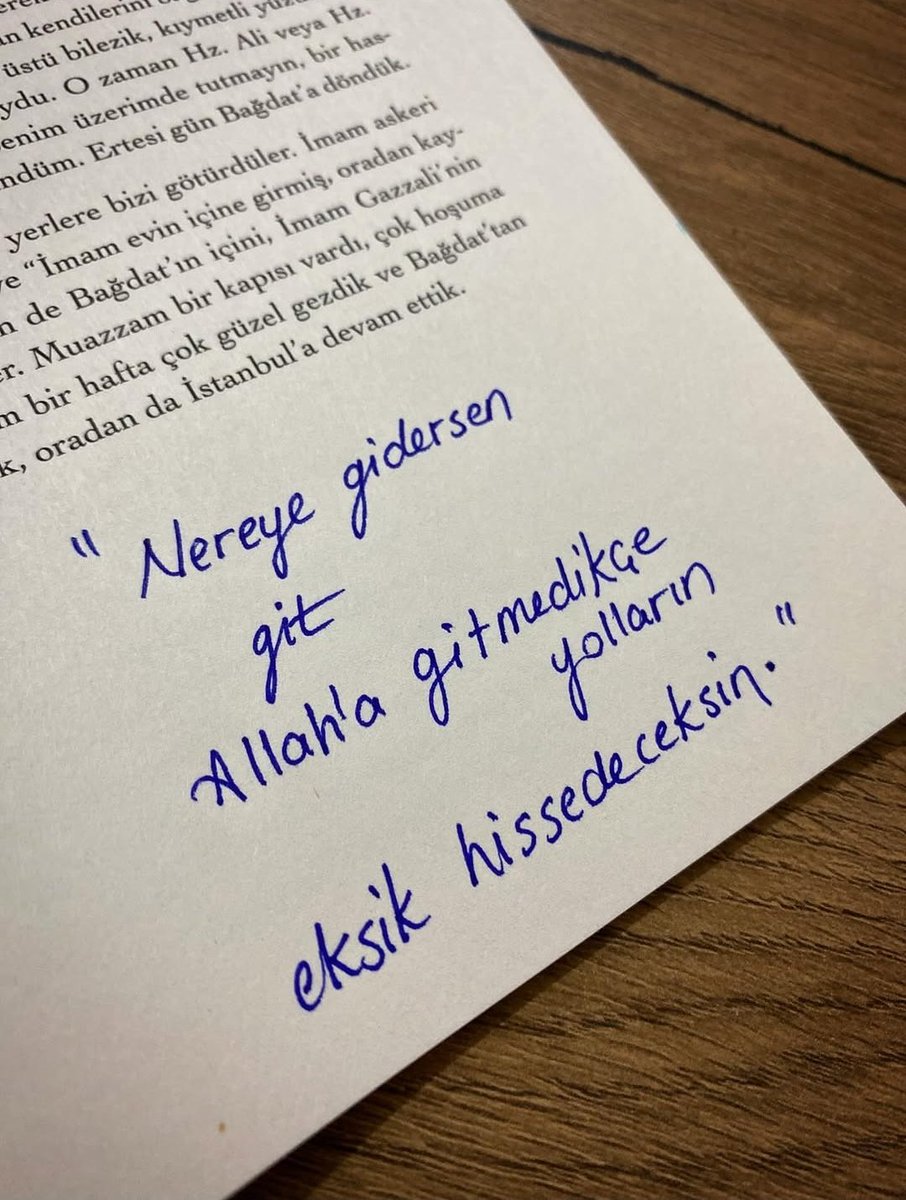 üstü bilezik, kıymetli
O zaman Hz. Ali veya Hz.
üzerimde tutmayın, bir has-
Ertesi gün Bağdat'a döndük.
yerlere bizi götürdüler. İmam askeri
"İmam evin içine girmiş, oradan kay-
de Bağdat'ın içini, İmam Gazzali'nin
Muazzam bir kapısı vardı, çok hoşuma
bir hafta çok güzel gezdik ve Bağdat'tan
oradan da İstanbul'a devam ettik.
" Nereye gidersen
git
Allah'a gitmedikçe
yolların
eksik hissedeceksin."